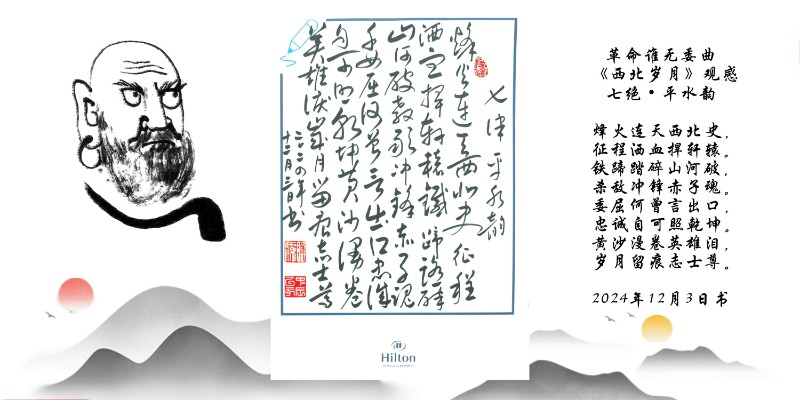 革命谁无委曲
《西北岁月》观感
七绝·平水韵
烽火连天西北史，
征程洒血捍轩辕。
铁蹄踏碎山河破，
杀敌冲锋赤子魂。
委屈何曾言出口，
忠诚自可照乾坤。
黄沙漫卷英雄泪，
岁月留痕志士尊。
2024年12月3日书
七律 平水韵
烽火连天西北史 征程
洒血捍轩辕 铁蹄踏碎
山河破 杀敌冲锋赤子魂
委屈何曾言出口 忠诚
自可照乾坤 黄沙漫卷
英雄泪 岁月留痕志士尊
二〇二四年
十二月三日书
Hilton